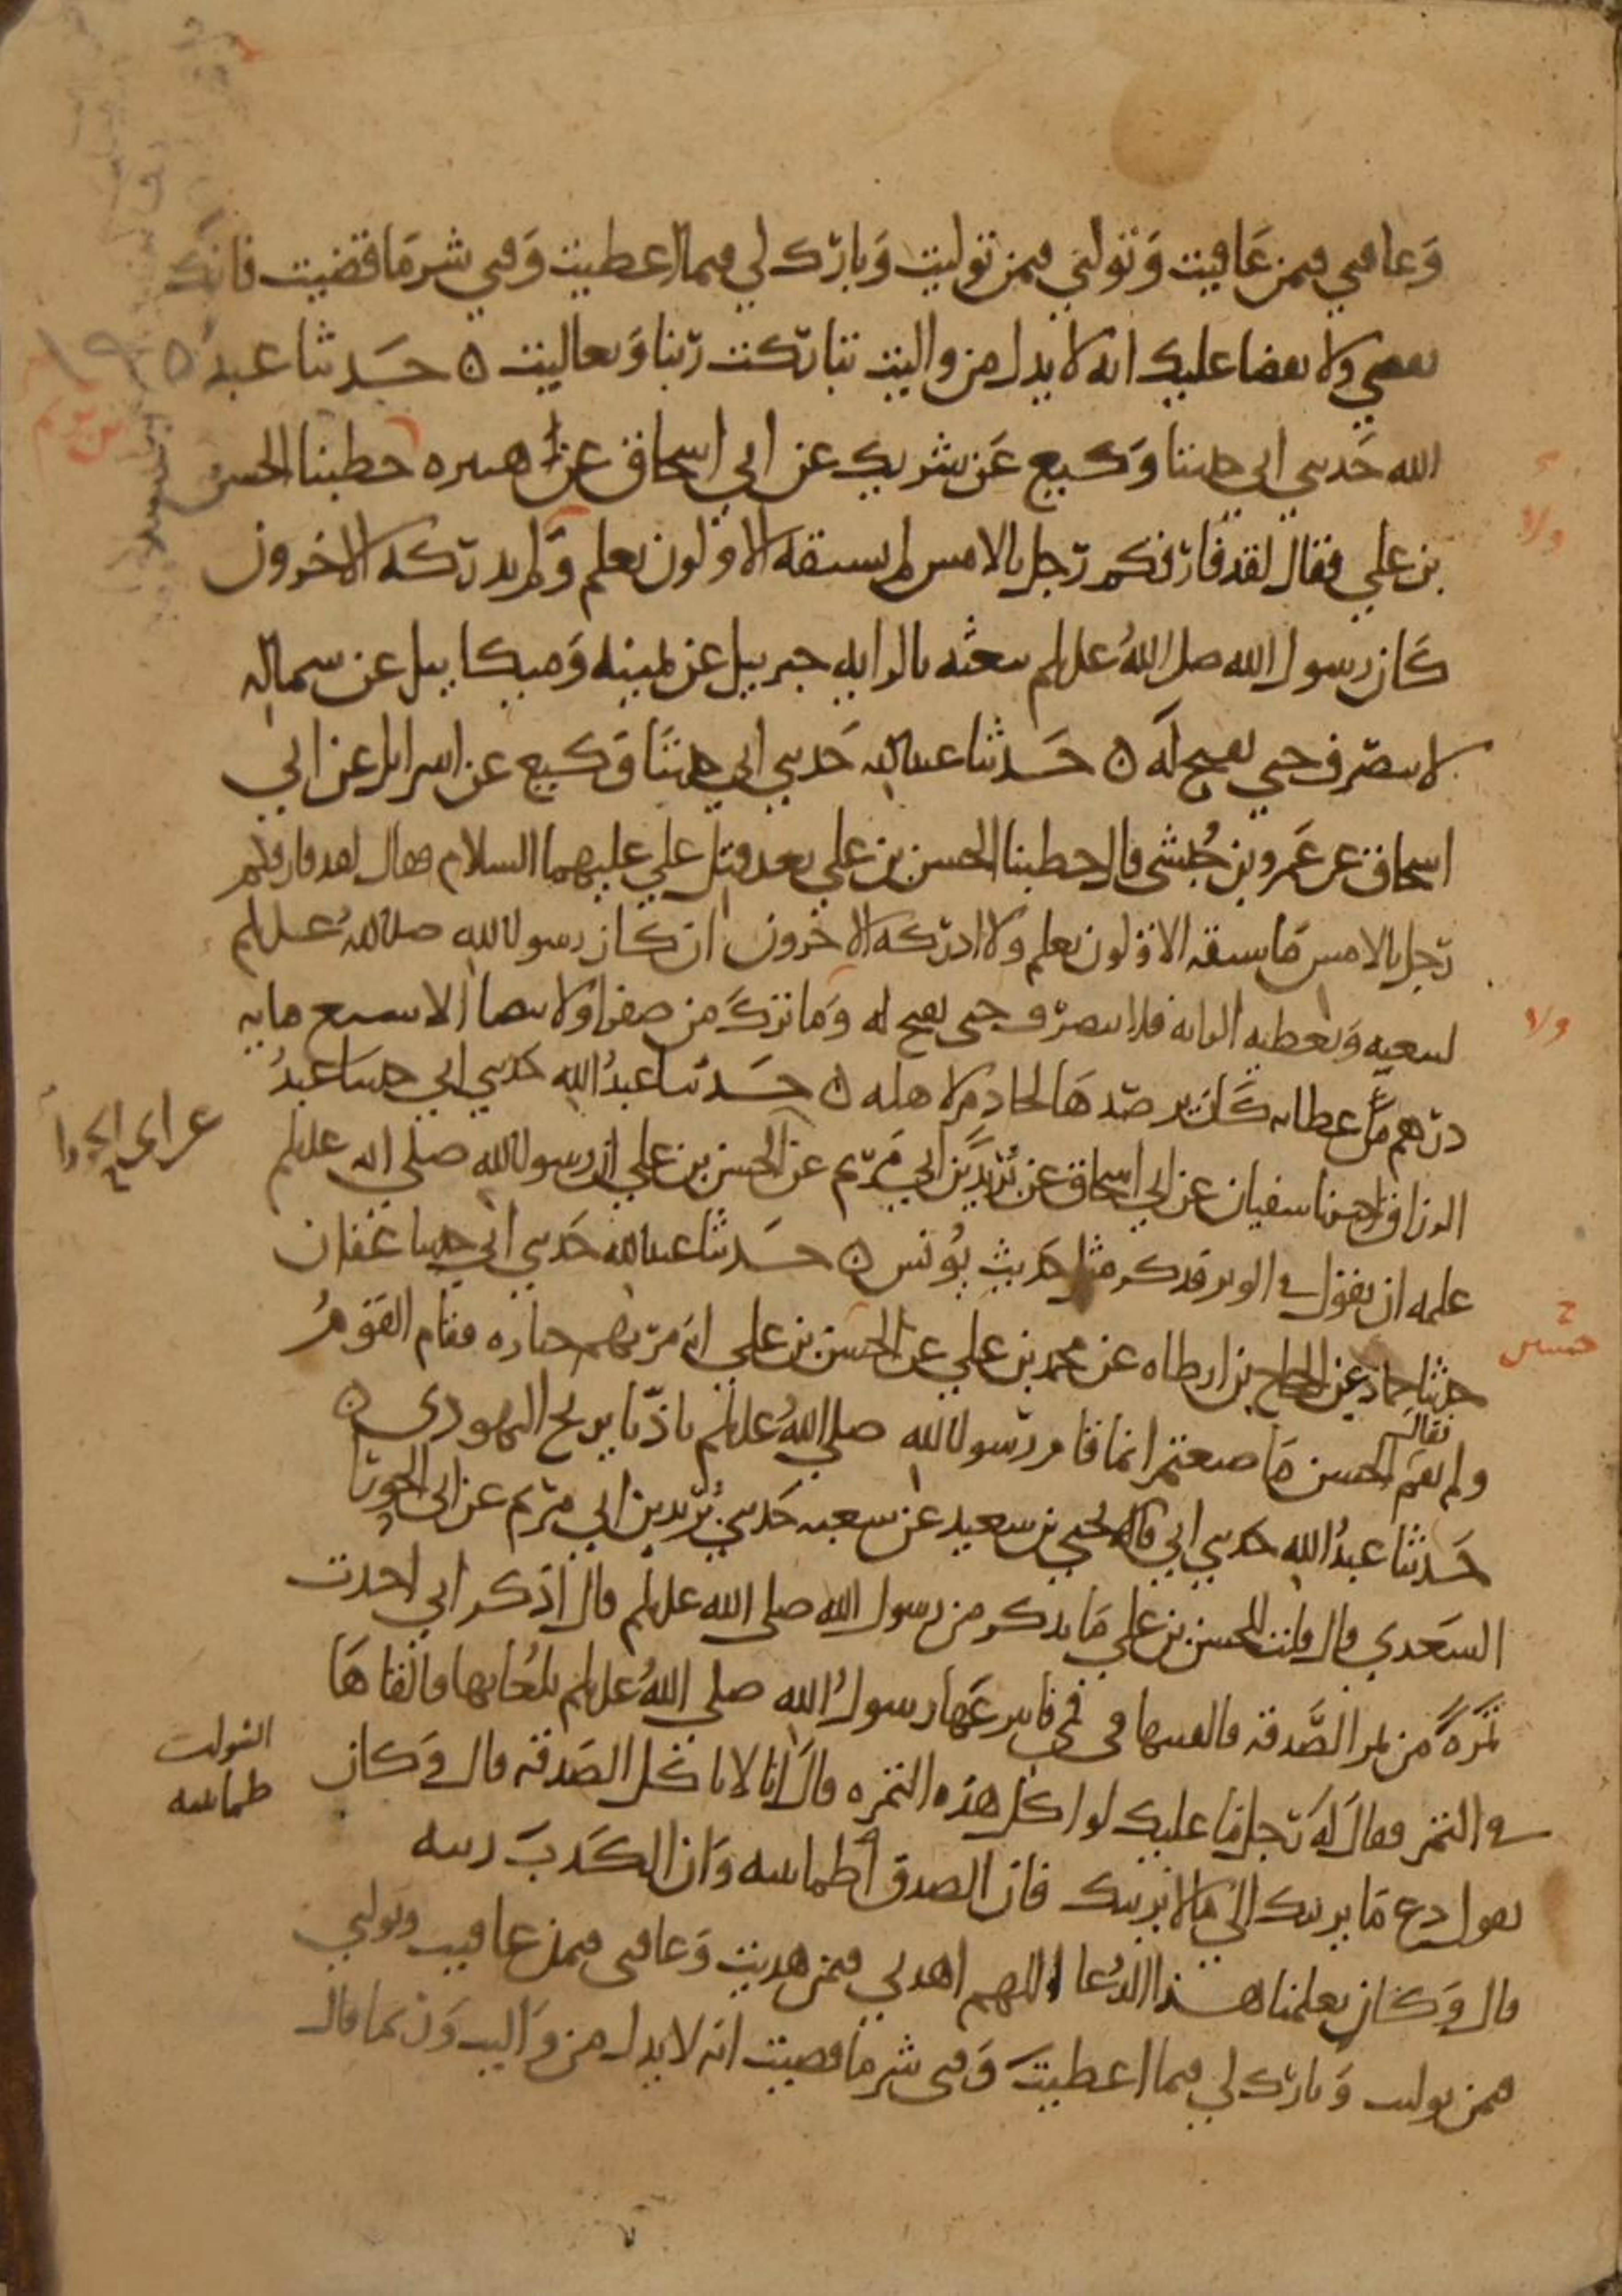 وَعافني فيمن عَافيت وَتولني فيمن توليت وَبارك لي فيما اعطيت وَقني شر مَا قضيت فانك
تقضي ولا يقضا عليك انه لا يذل من واليت تباركت ربنا وَتعاليت ه حَدثنا عبد
الله حَدثني ابي حدثنا وَكيع عَن شريك عن ابي اسحاق عن هبيره خطبنا الحسن
بن علي فقال لقد فارقكم رَجل بالامس لم يسبقه الاولون بعلم وَلم يدركه الاخرون
كَان رسول الله صلى اللهُ عليه وسلم يبعثه بالرايه جبرييل عن يمينه وَميكاييل عن شماله
لا ينصرف حتى يفتح لَه ه حَدثنا عبدالله حَدثني ابي حدثنَا وَكيع عن اسرايل عن ابي
اسحاق عن عَمرو بن حُبشي قال خطبنا الحسن بن علي بعد قتل علي عليهما السلام فقال لقد فارقكم
رَجل بالامس مَا سبقه الاوَلون بعلم وَلا ادركه الاخرون ان كَان رسول الله صلى اللهُ عليه وسلم
ليبعثه وَيعطيه الرايه فلا ينصرف حتى يفتح له وَمَا تركَ من صفرا وَلا بيضا الا سبع مايه
درهم من عطايه كَان يرصدهَا لخادم لاهله ه حَدثنا عبدُ الله حَدثني ابي حدثنا عبدُ
الرزاق اخبرنا سفيان عن ابي اسحاق عن بُريد بن ابي مَريم عن الحسن بن علي ان رسول الله صلى الله عليه وسلم
عن ابي الحورا
علمه ان يقول في الوتر فذكر مثل حَديث يُونس ه حَدثنا عبدالله حَدثني ابي حدثنا عَفان
حدثنا حماد عن الحجاج بن ارطاه عن محمد بن علي عن الحسَن بن علي انه مرّ بهم جنازه فقام القَومُ
ولم يقم فقال الحسن مَا صنعتم انما قام رَسول الله صلى اللهُ عليه وسلم تاذّيا بريح اليهودي ه
حَدثنا عبدُ الله حَدثني ابي قال يحيى بن سعيد عن شعبه حَدثني بُريد بن ابي مَريم عن ابي الحورَا
السَعدي قال قلت للحسن بن علي مَا تذكر من رسول الله صلى الله عليه وسلم قال اذكر اني اخذت
تَمرَةً من تمر الصَّدقه فالقيتها في في فانتزعَها رسولُ الله صلى اللهُ عليه وسلم بلُعابها فالقاهَا
في التمر فقالَ لَه رَجل مَا عليك لو اكل هذه التمره قالَ انا لا ناكُل الصَدقه قال وَكان
يقول دع مَا يريبك الى مَا لا يريبك فان الصدق طمانينه وَان الكَذبَ ريبه
طمانينه
قال وَكان يعلمنا هذا الدُعا اللهم اهدني فيمن هديت وَعافني فيمن عافيت وتولني
فيمن توليت وَبارك لي فيما اعطيتَ وَقني شر مَا قضيت انه لا يذل من وَاليت وَربما قال